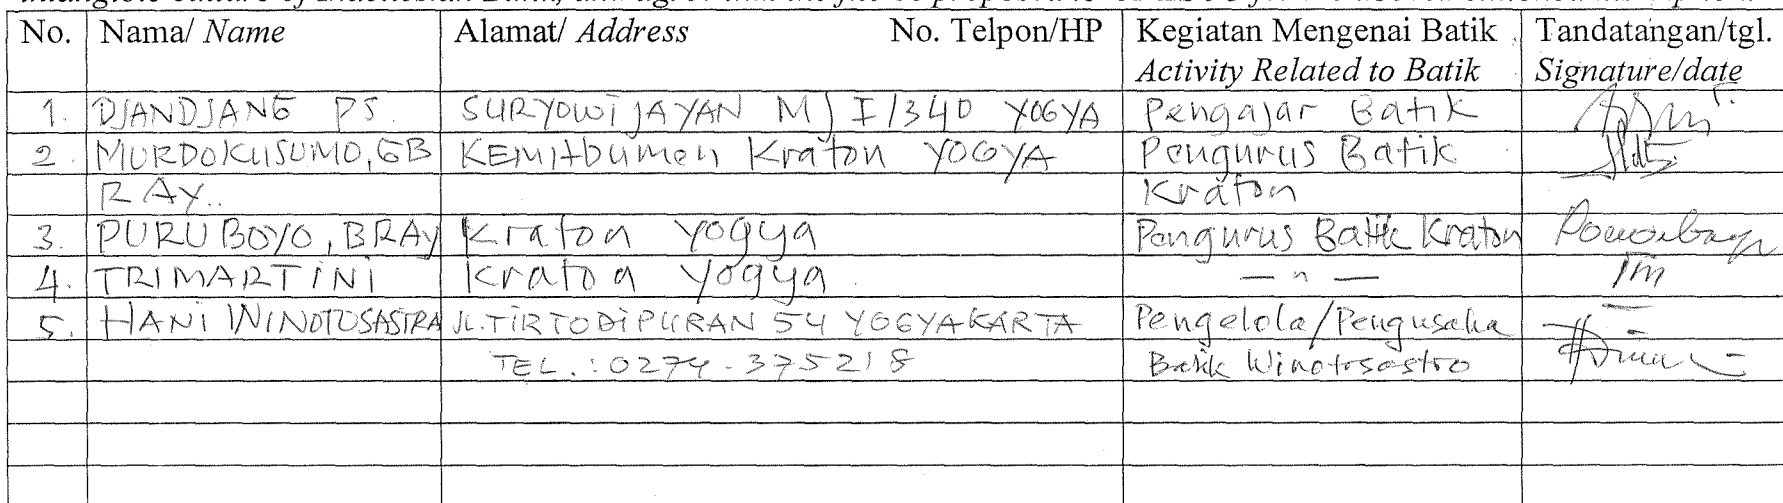 No. Nama/ Name Alamat/ Address No. Telpon/HP Kegiatan Mengenai Batik Tandatangan/tgl.
Activity Related to Batik Signature/date
1. DJANDJANG PS. SURYOWIJAYAN MJ I/340 YOGYA Pengajar Batik
2. MURDOKUSUMO, GB KEMITbUMEN Kraton YOGYA Pengurus Batik
RAY.. Kraton
3. PURUBOYO, BRAY Kraton Yogya Pengurus Batik Kraton
4. TRIMARTINI Kraton Yogya — " —
5. HANI WINOTOSASTRA JL. TIRTODIPURAN 54 YOGYAKARTA Pengelola/Pengusaha
TEL.: 0274-375218 Batik Winotosastro